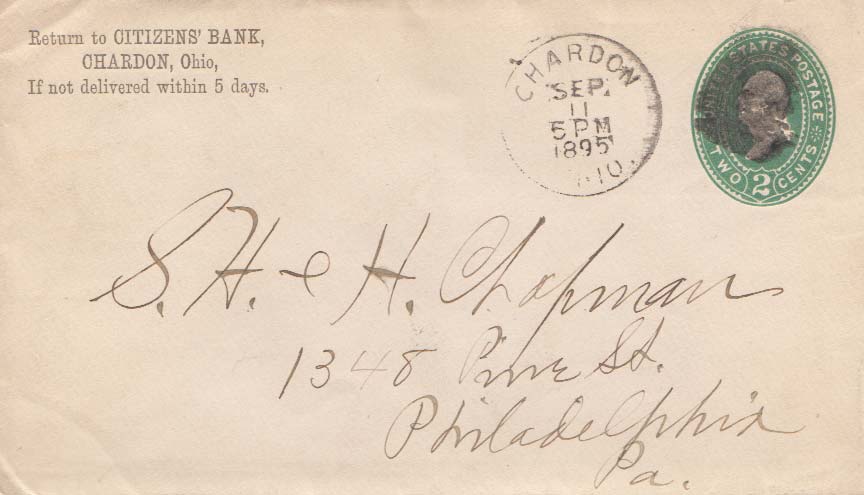 Return to CITIZENS' BANK,
CHARDON, Ohio,
If not delivered within 5 days.
CHARDON
SEP
11
5 PM
1895
UNITED STATES POSTAGE
TWO 2 CENTS
S. H. & H. Chapman
1348 Pine St.
Philadelphia
Pa.